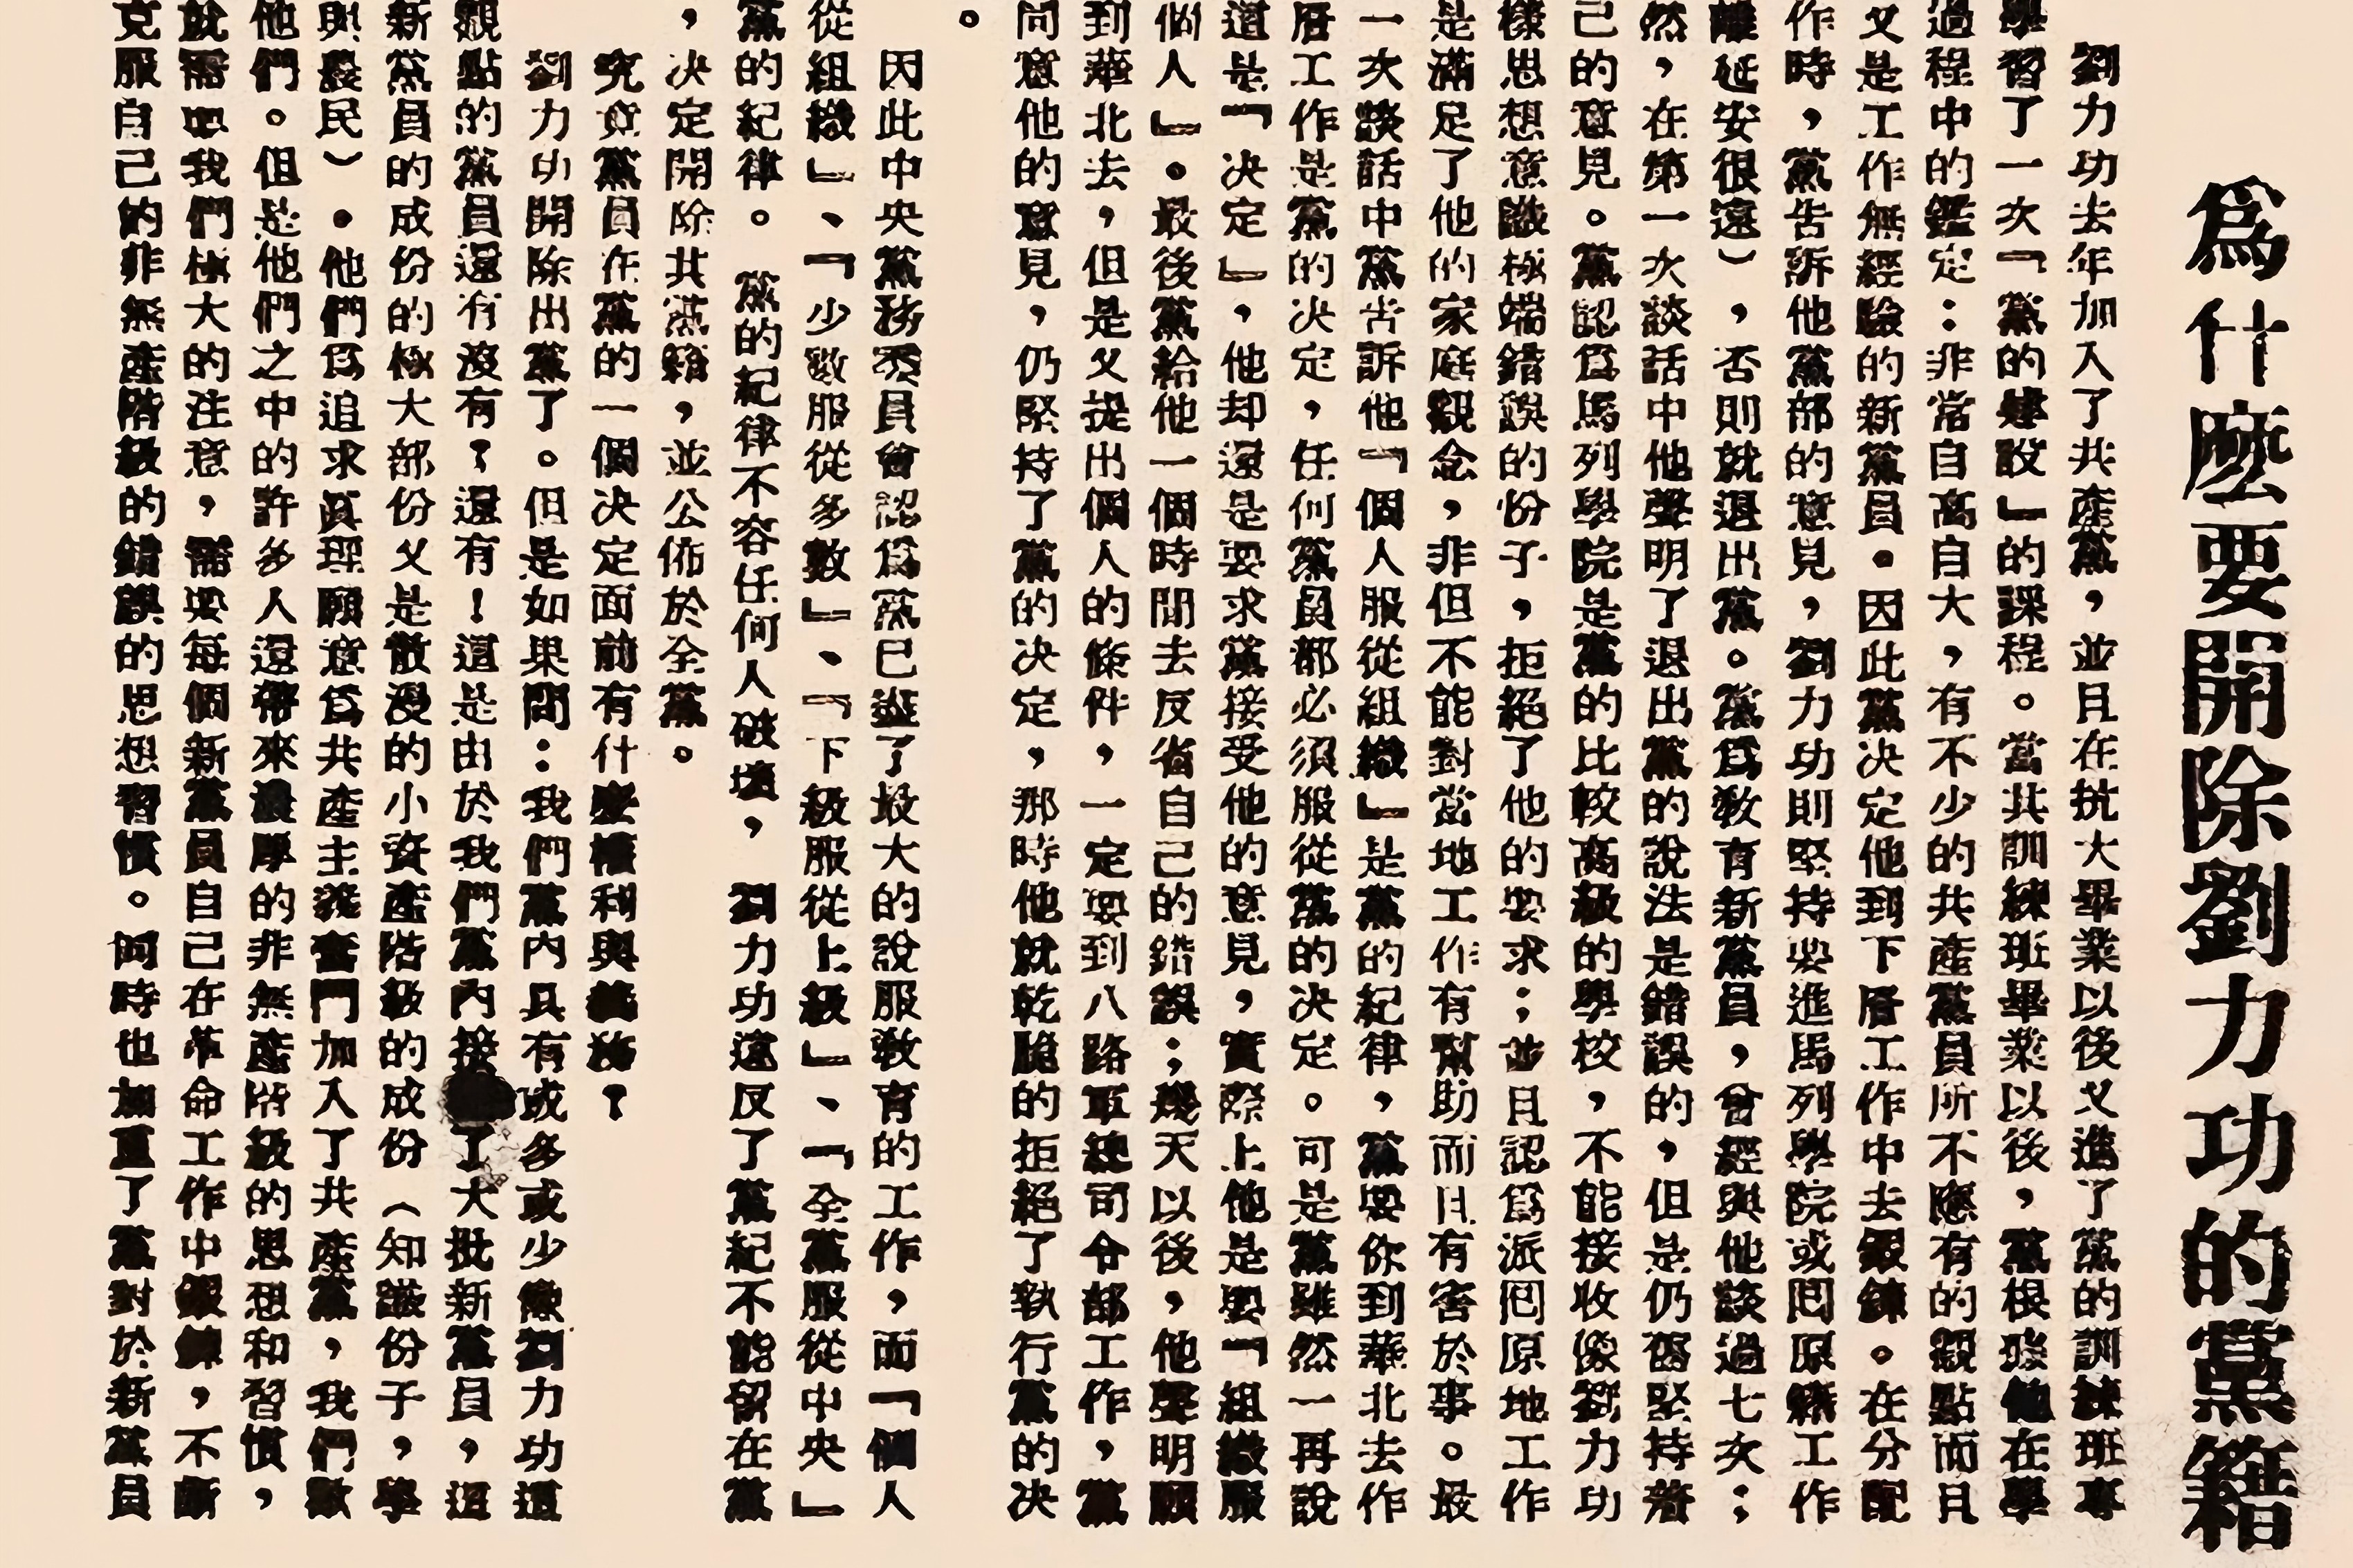 爲什麽要開除劉力功的黨籍
劉力功去年加入了共產黨，並且在抗大畢業以後又進了黨的訓練班專
學習了一次「黨的建設」的課程。當其訓練班畢業以後，黨根據他在學
過程中的鑑定：非常自高自大，有不少的共產黨員所不應有的觀點而且
又是工作無經驗的新黨員。因此黨决定他到下層工作中去鍛鍊。在分配
作時，黨告訴他黨部的意見，劉力功則堅持要進馬列學院或囘原籍工作
離延安很遠），否則就退出黨。黨爲敎育新黨員，曾經與他談過七次；
然，在第一次談話中他聲明了退出黨的說法是錯誤的，但是仍舊堅持着
己的意見。黨認爲馬列學院是黨的比較高級的學校，不能接收像劉力功
樣思想意識極端錯誤的份子，拒絕了他的要求；並且認爲派囘原地工作
是滿足了他的家庭觀念，非但不能對當地工作有幫助而且有害於事。最
一次談話中黨告訴他「個人服從組織」是黨的紀律，黨要你到華北去作
層工作是黨的决定，任何黨員都必須服從黨的决定。可是黨雖然一再說
道是「决定」，他却還是要求黨接受他的意見，實際上他是要「組織服
個人」。最後黨給他一個時間去反省自己的錯誤；幾天以後，他聲明願
到華北去，但是又提出個人的條件，一定要到八路軍總司令部工作，黨
同意他的意見，仍堅持了黨的决定，那時他就乾脆的拒絕了執行黨的决
。
因此中央黨務委員會認爲黨已盡了最大的說服敎育的工作，而「個人
從組織」、「少數服從多數」、「下級服從上級」、「全黨服從中央」
黨的紀律。黨的紀律不容任何人破壞，劉力功違反了黨紀不能留在黨
，决定開除共黨籍，並公佈於全黨。
究竟黨員在黨的一個决定面前有什麽權利與義務？
劉力功開除出黨了。但是如果問：我們黨內具有或多或少像劉力功這
觀點的黨員還有沒有？還有！這是由於我們黨內接了大批新黨員，這
新黨員的成份的極大部份又是散漫的小資產階級的成份（知識份子，學
與農民）。他們爲追求眞理願意爲共產主義奮鬥加入了共產黨，我們歡
他們。但是他們之中的許多人還帶來濃厚的非無產階級的思想和習慣，
就需要我們極大的注意，需要每個新黨員自己在革命工作中鍛鍊，不斷
克服自己的非無產階級的錯誤的思想習慣。同時也加重了黨對於新黨員